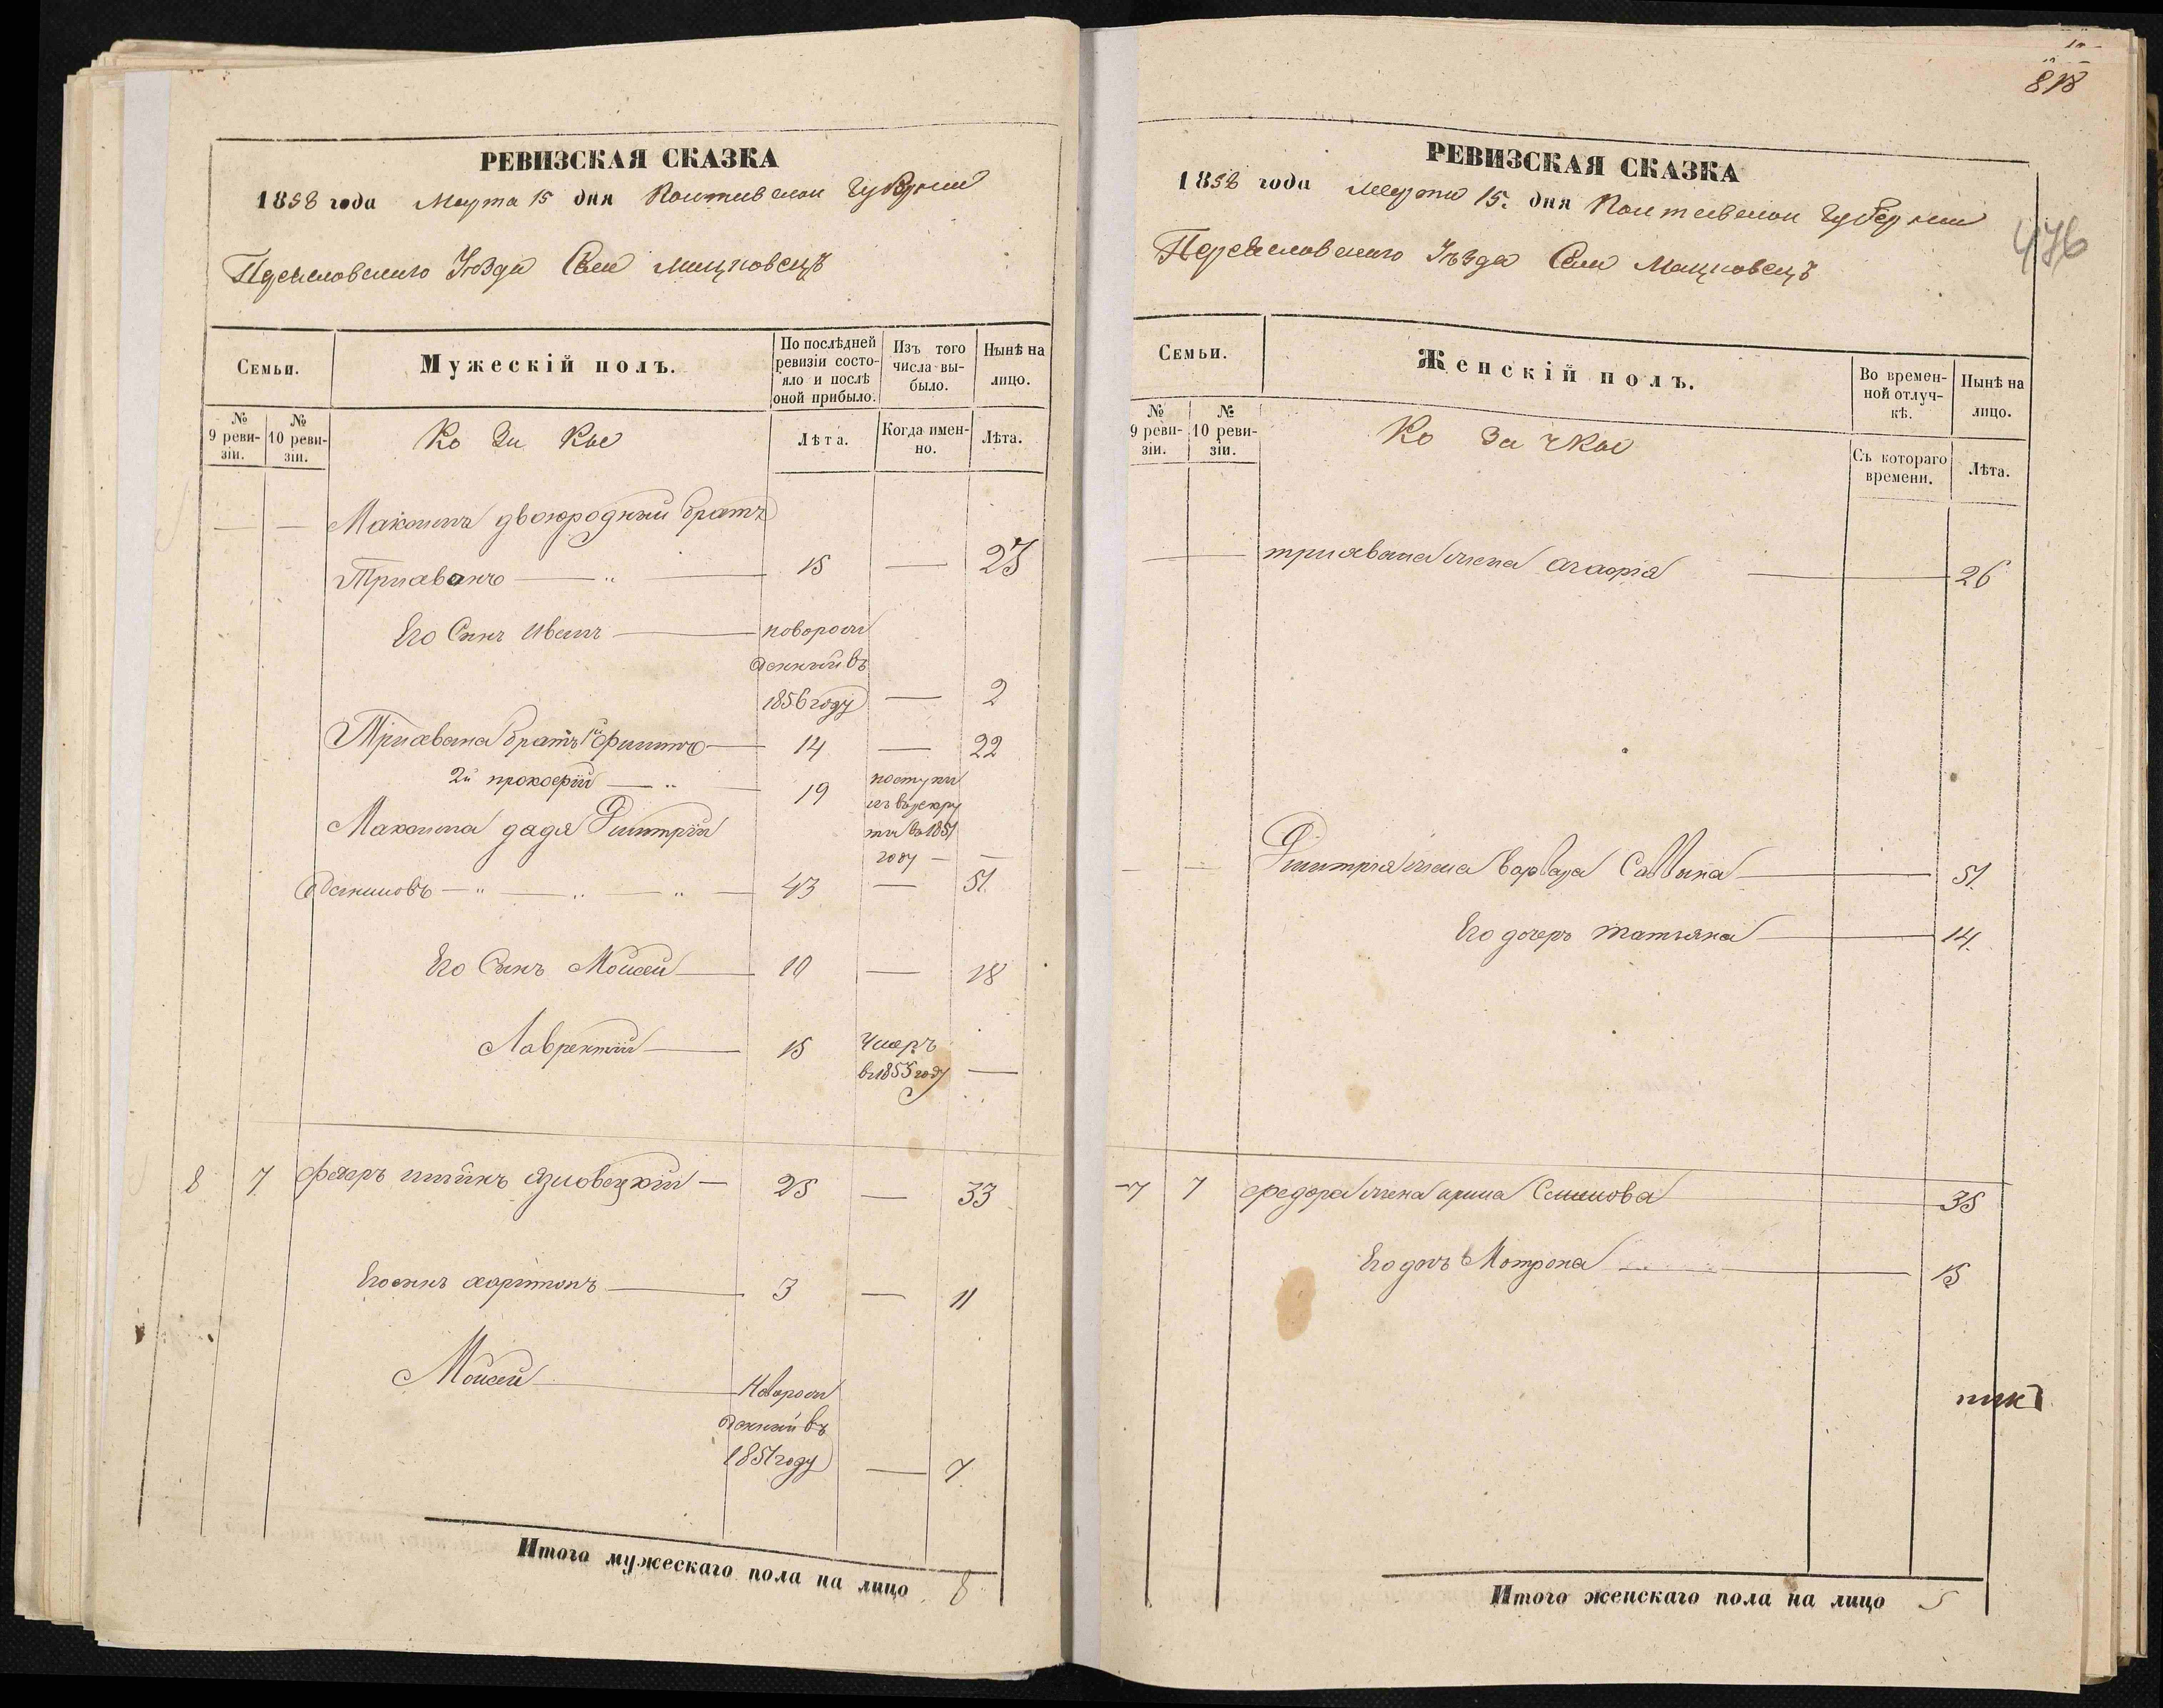 РЕВИЗСКАЯ СКАЗКА
1858 года Марта 15 дня Полтавской Губернии
Переяславского Уѣзда Села Мацковецъ
Семьи.
Мужескій полъ.
По послѣдней ревизіи состояло и послѣ оной прибыло.
Изъ того числа выбыло.
Нынѣ на лицо.
№ 9 ревизіи.
№ 10 ревизіи.
Ко За Ки
Лѣта.
Когда именно.
Лѣта.
— — Максима двоюродный братъ
— " — 15 — 23
Его Сынъ Иванъ — новорож
денный въ
1856 году — 2
братъ 1й Филипъ — 14 — 22
2й прокофій — " — 19 поступил
въ рекру
ты въ 1851
году — —
Максима дядя Дмитрій
— " — " — " — 43 — 51.
Его Сынъ Мойсей — 10 — 18
Лаврентій — 15 Умеръ
въ 1853 году —
8 7 Федоръ Язловецкій — 25 — 33
Его сынъ харитонъ — 3 — 11
Мойсей — Новорож
денный въ
1851 году — 7.
Итого мужескаго пола на лицо 8
818
476
РЕВИЗСКАЯ СКАЗКА
1858 года Марта 15. дня Полтавской Губернии
Переяславского Уѣзда Села Мацковецъ
Семьи.
Женскій полъ.
Во временной отлучкѣ.
Нынѣ на лицо.
№ 9 ревизіи.
№ 10 ревизіи.
Ко За чки
Съ котораго времени.
Лѣта.
— — жена агафія — 26
— — Дмитрія жена Варвара Саввина — 51.
Его дочерь татьяна — 14.
7 7 федора жена арина Семенова — 35
Его дочь Мотрона — 15
Итого женскаго пола на лицо 5